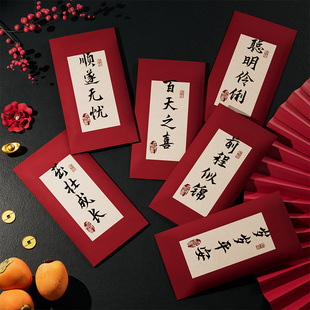 顺遂无忧
百天之喜
聪明伶俐
茁壮成长
前程似锦
岁岁平安